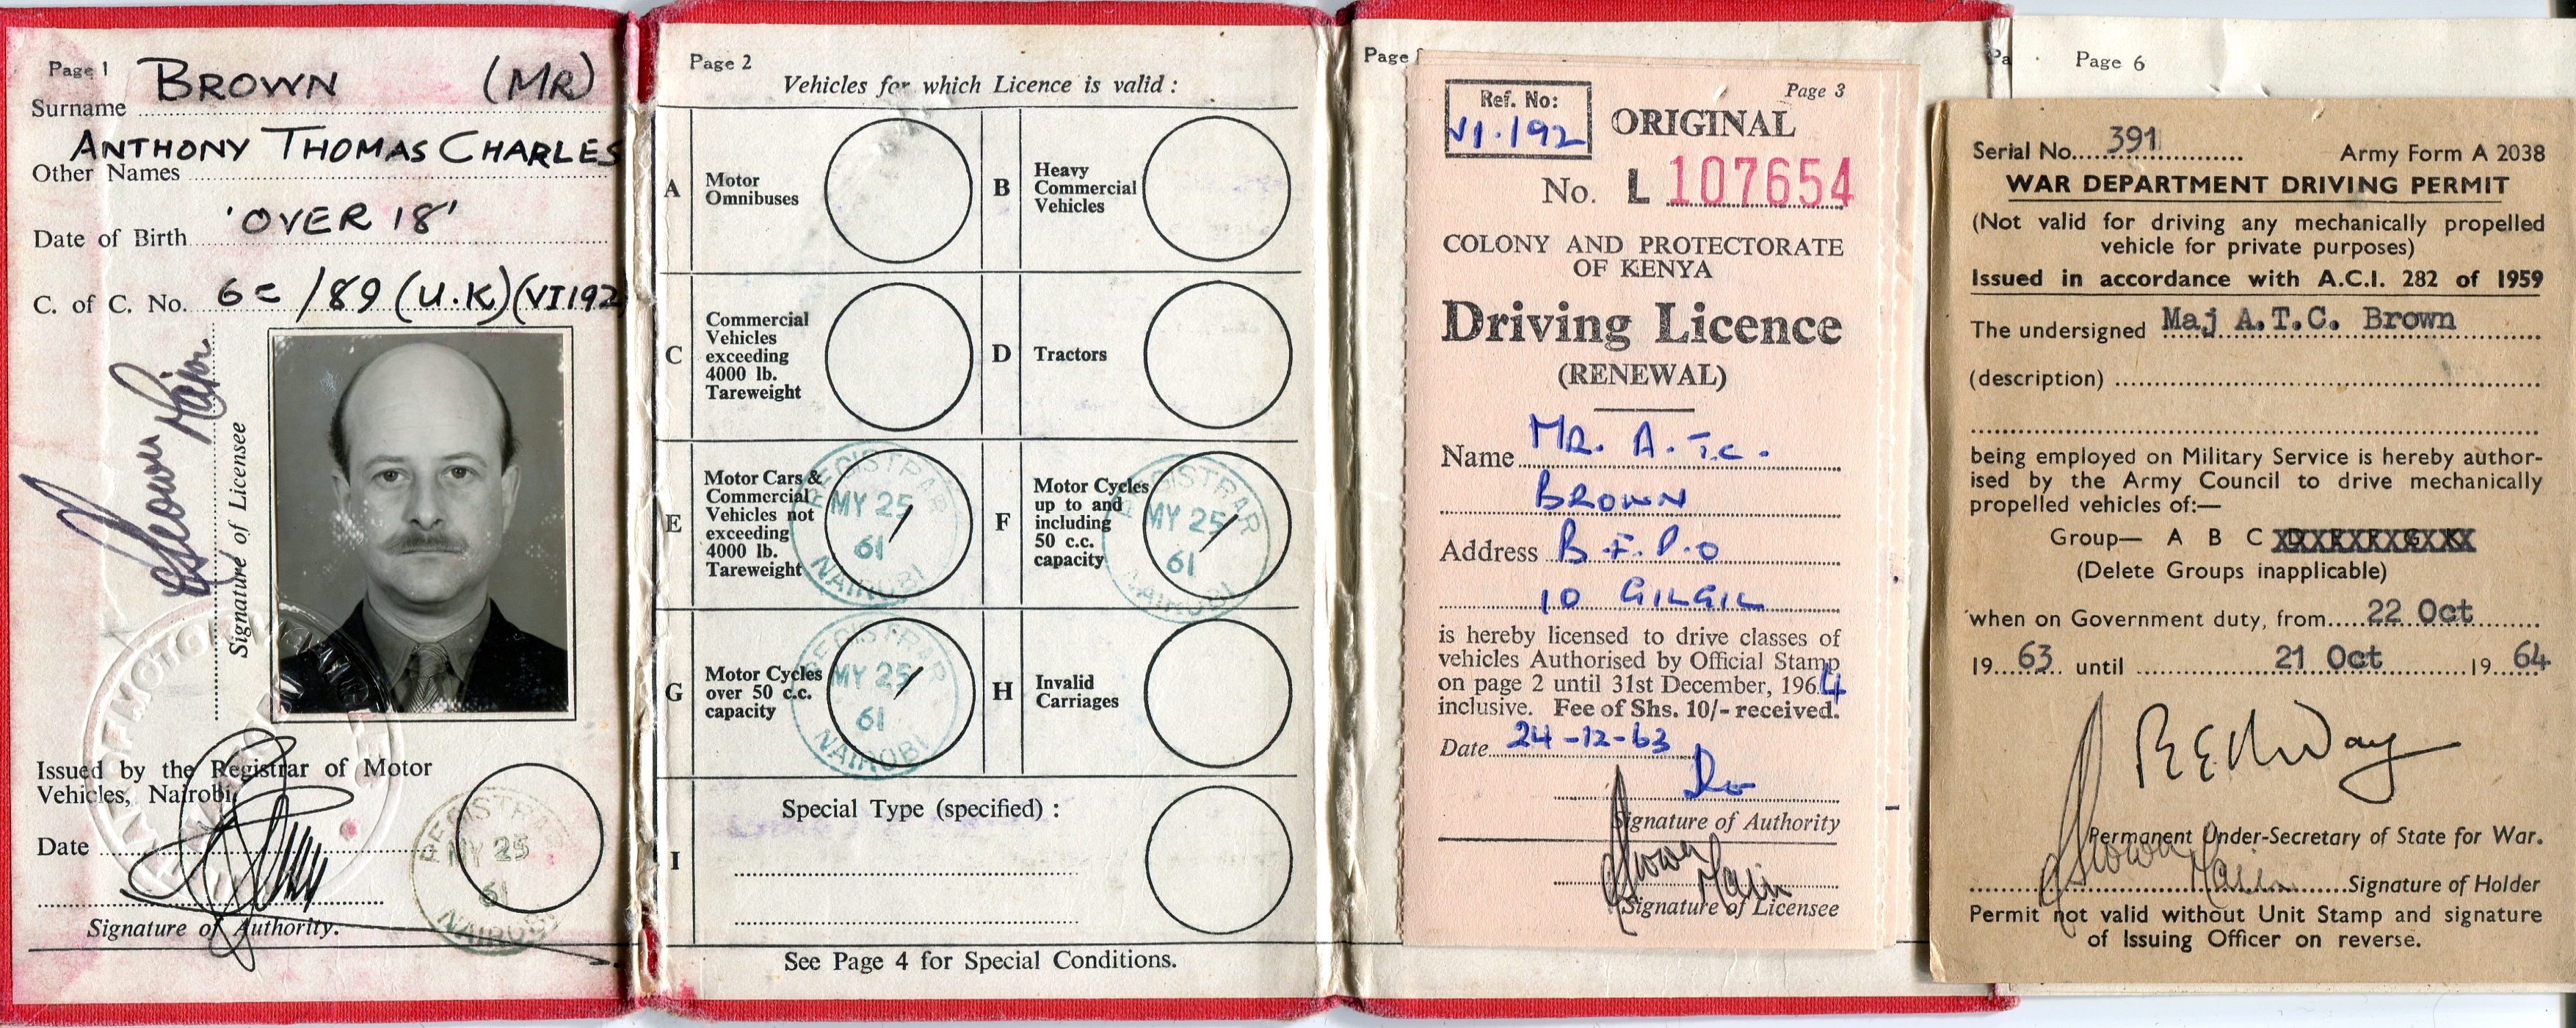 Page 1
BROWN (MR)
Surname
ANTHONY THOMAS CHARLES
Other Names
'OVER 18'
Date of Birth
C. of C. No. 6c /89 (U.K)(VI192
Signature of Licensee
Issued by the Registrar of Motor
Vehicles, Nairobi,
Date
REGISTRAR
MY 25
61
NAIROBI
Signature of Authority.
Page 2
Vehicles for which Licence is valid :
A Motor
Omnibuses
B Heavy
Commercial
Vehicles
C Commercial
Vehicles
exceeding
4000 lb.
Tareweight
D Tractors
E Motor Cars &
Commercial
Vehicles not
exceeding
4000 lb.
Tareweight
REGISTRAR
MY 25
61
NAIROBI
F Motor Cycles
up to and
including
50 c.c.
capacity
REGISTRAR
MY 25
61
NAIROBI
G Motor Cycles
over 50 c.c.
capacity
REGISTRAR
MY 25
61
NAIROBI
H Invalid
Carriages
I Special Type (specified) :
See Page 4 for Special Conditions.
Page
Page 3
Ref. No:
VI.192
ORIGINAL
No. L 107654
COLONY AND PROTECTORATE
OF KENYA
Driving Licence
(RENEWAL)
Name MR. A.T.C.
BROWN
Address B.F.P.O
10 GILGIL
is hereby licensed to drive classes of
vehicles Authorised by Official Stamp
on page 2 until 31st December, 1964
inclusive. Fee of Shs. 10/- received.
Date 24-12-63
Signature of Authority
Brown Major
Signature of Licensee
Pa
Page 6
Serial No. 391 Army Form A 2038
WAR DEPARTMENT DRIVING PERMIT
(Not valid for driving any mechanically propelled
vehicle for private purposes)
Issued in accordance with A.C.I. 282 of 1959
The undersigned Maj A.T.C. Brown
(description)
being employed on Military Service is hereby author-
ised by the Army Council to drive mechanically
propelled vehicles of:—
Group— A B C
(Delete Groups inapplicable)
when on Government duty, from 22 Oct
19 63 until 21 Oct 19 64
Permanent Under-Secretary of State for War.
Brown Major Signature of Holder
Permit not valid without Unit Stamp and signature
of Issuing Officer on reverse.